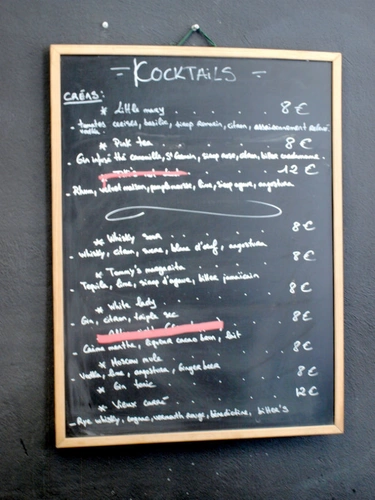 = COCKTAILS =
CRÉAS:
* Little mary . . . . 8 €
- tomates cerises, basilic, sirop romarin, citron, assaisonnement
vodka
* Pink tea . . . . 8 €
Gin infusé thé camomille, St Germain, sirop rose, citron, bitter cardamome
12 €
- Rhum, velvet falernum, pamplemousse, lime, sirop agave, angostura
* Whisky sour . . . . 8 €
- whisky, citron, sucre, blanc d'œuf, angostura
* Tommy's margarita . . . . 8 €
Tequila, lime, sirop d'agave, bitter jamaïcain
* White lady . . . . 8 €
- Gin, citron, triple sec
8 €
- Crème menthe, liqueur cacao blanc, lait
* Moscow mule . . . . 8 €
- Vodka, lime, angostura, Ginger beer
* Gin tonic . . . . 8 €
* Vieux carré . . . . 12 €
- Rye whisky, cognac, vermouth rouge, bénédictine, bitter's